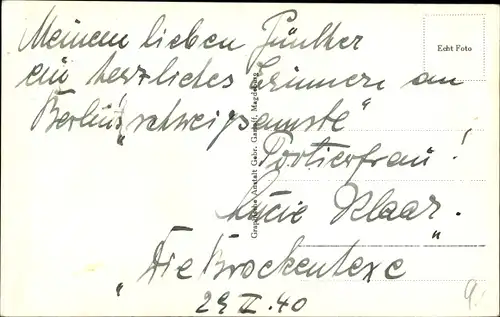 Meinem lieben Günther
ein herzliches Erinnern an
Berlins "schweigsamste"
Portierfrau!
Lucie Klaar.
"Die Brockenhexe"
29 II. 40
Echt Foto
Graphische Anstalt Gebr. Garloff, Magdeburg